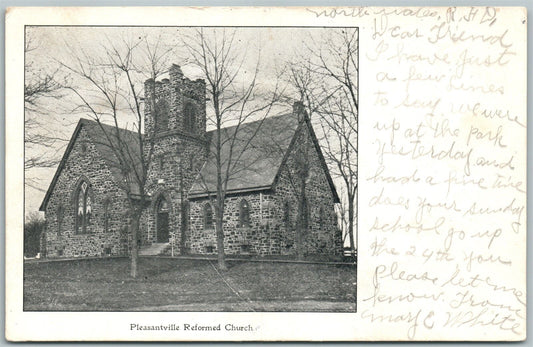 North Wales, R.F.D.
Dear Friend
I have just
a few lines
to say we were
up at the park
yesterday and
had a fine time
does your sunday
school go up
the 24th you
Please let me
know. From
Mary E White
Pleasantville Reformed Church